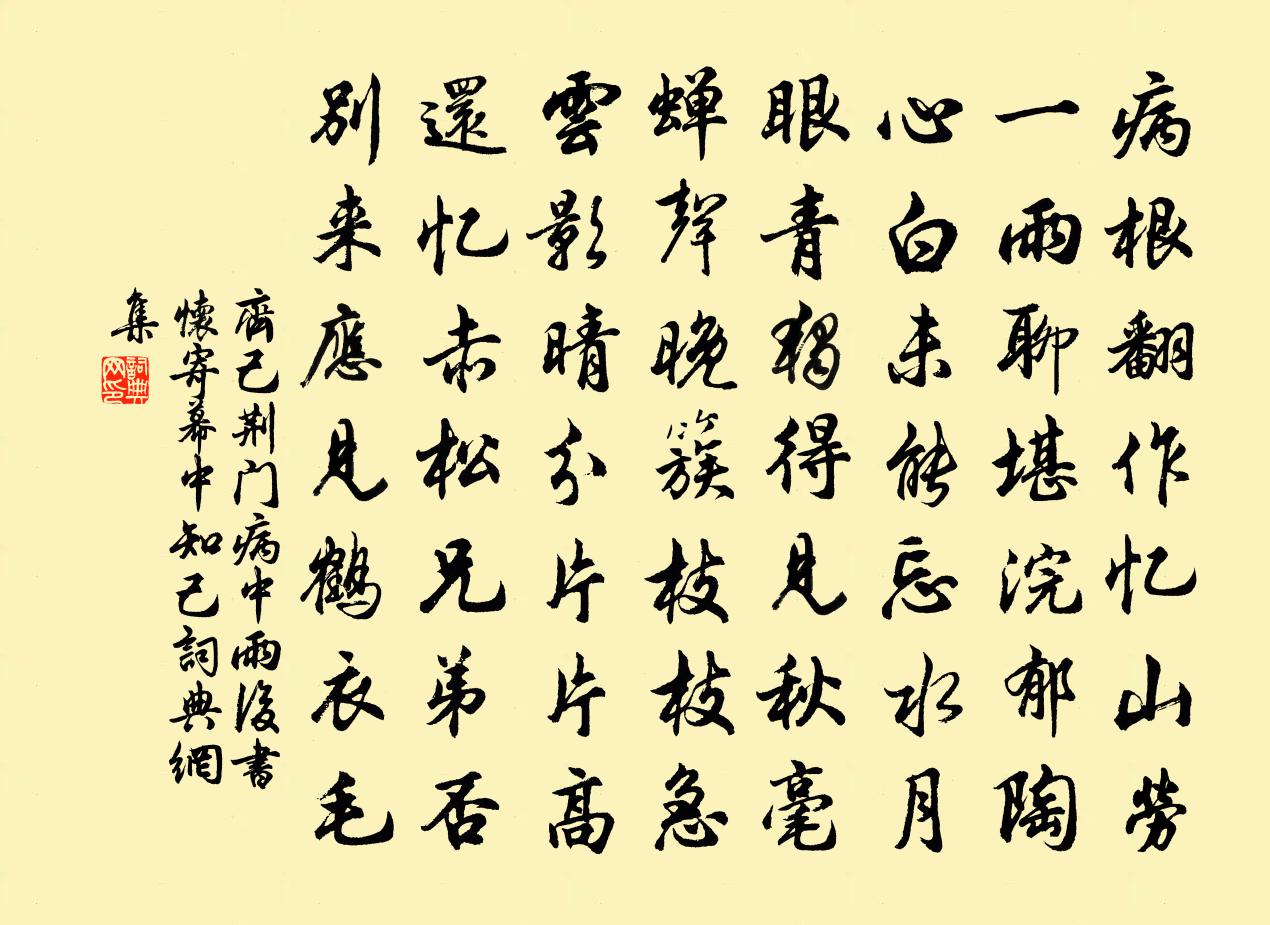 病根翻作忆山劳
一雨聊堪浣郁陶
心白未能忘水月
眼青独得见秋毫
蝉聲晚簇枝枝急
雲影晴分片片高
還忆赤松兄弟否
别来應見鶴衣毛
齊己荆门病中雨後書
懷寄幕中知己詞典網
集
詞典网印